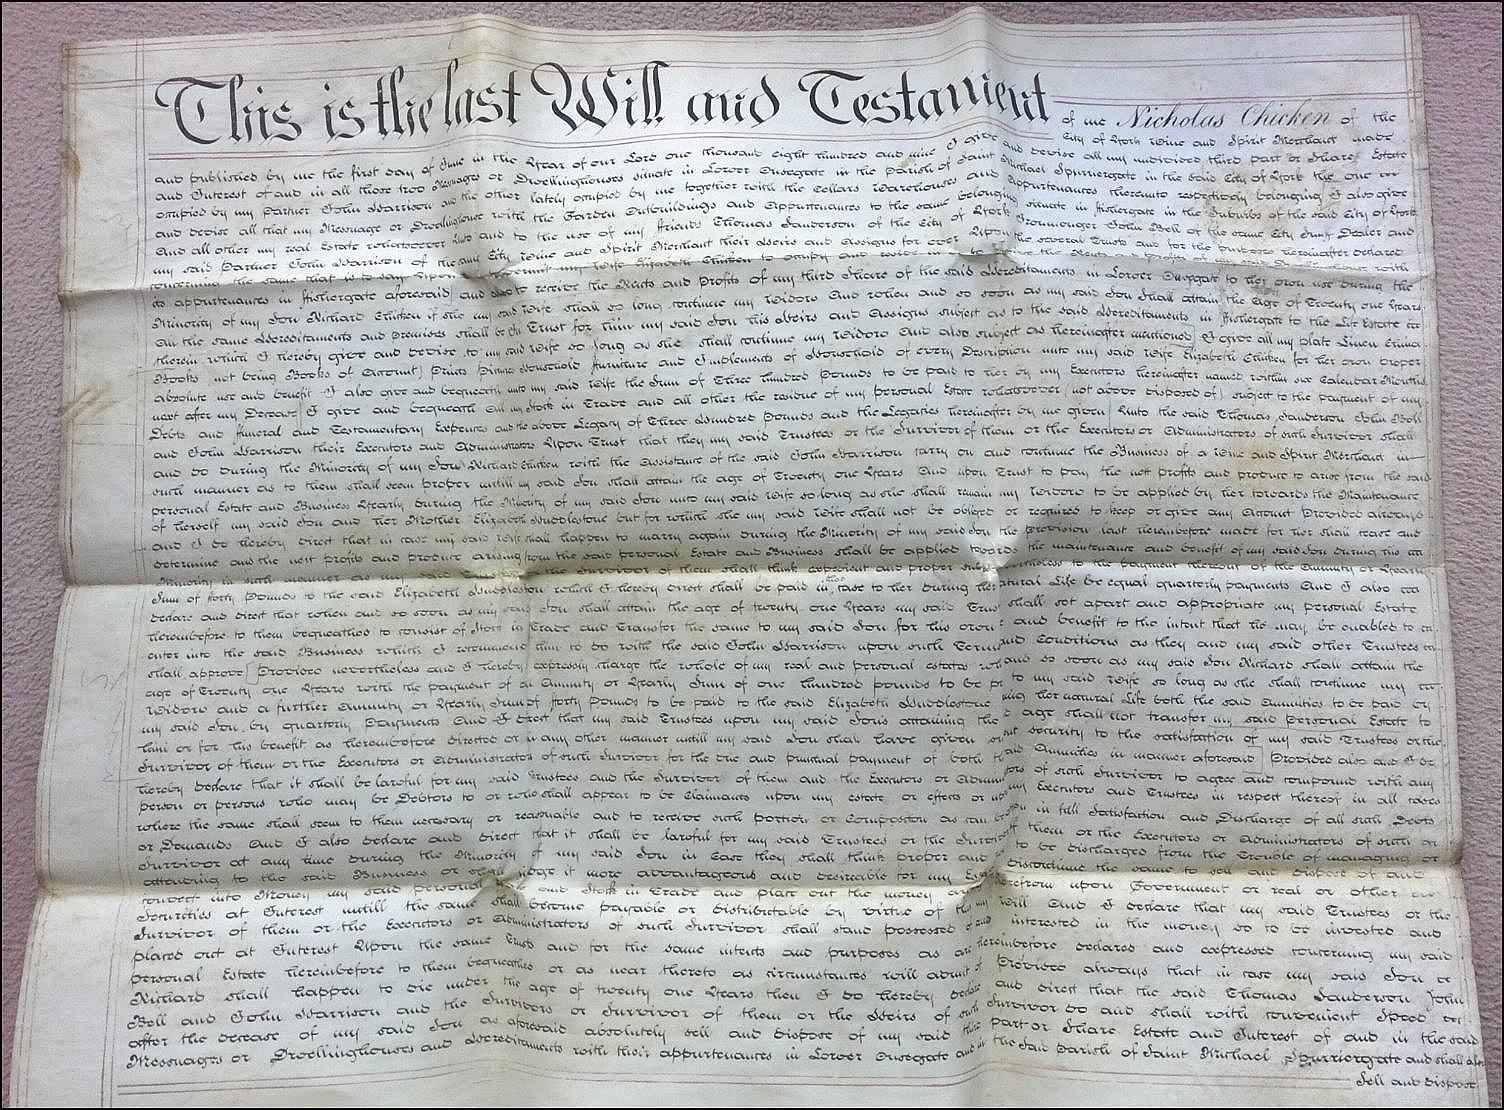 This is the last Will and Testament of me Nicholas Chicken of the
City of York Wine and Spirit Merchant made
and published by me the first day of June in the Year of our Lord one thousand eight hundred and nine I give and devise all my undivided third part or Share Estate
and Interest of and in all those two Messuages or Dwellinghouses situate in Lower Ousegate in the parish of Saint Michael Spurriergate in the said City of York the one in
occupied by my partner John Harrison and the other lately occupied by me together with the Cellars Warehouses and Appurtenances thereunto respectively belonging I also give
and devise all that my Messuage or Dwellinghouse with the Garden Outbuildings and Appurtenances to the same belonging situate in Fishergate in the Suburbs of the said City of York
And all other my real Estate whatsoever unto and to the use of my friends Thomas Sanderson of the City of York Ironmonger John Bell of the same City Snuff Dealer and
my said Partner John Harrison of the same City Wine and Spirit Merchant their Heirs and Assigns for ever Upon the several Trusts and for the purposes hereinafter declared
concerning the same that is to say Upon permit my Wife Elizabeth Chicken to occupy and with
its appurtenances in Fishergate aforesaid and also to receive the Rents and profits of my third Share of the said Hereditaments in Lower Ousegate to her own use during the
Minority of my Son Richard Chicken if she my said Wife shall so long continue my Widow And when and so soon as my said Son shall attain the Age of Twenty one Years
All the same Hereditaments and premises shall be In Trust for him my said Son his Heirs and Assigns subject as to the said Hereditaments in Fishergate to the Life Estate
therein which I hereby give and devise to my said Wife so long as she shall continue my Widow And also subject as hereinafter mentioned I give all my plate Linen China
Books (not being Books of Account) Prints Pictures Household Furniture and Implements of Household of every Description unto my said Wife Elizabeth Chicken for her own proper
absolute use and benefit I also give and bequeath unto my said Wife the Sum of Three hundred Pounds to be paid to her by my Executors hereinafter named within six Calendar Months
next after my Decease I give and bequeath all my Stock in Trade and all other the residue of my personal Estate whatsoever (not above disposed of) subject to the payment of my
Debts and Funeral and Testamentary Expences and the above Legacy of Three Hundred Pounds and the Legacies hereinafter by me given Unto the said Thomas Sanderson John Bell
and John Harrison their Executors and Administrators Upon Trust that they my said Trustees or the Survivor of them or the Executors or Administrators of such Survivor shall
and do during the Minority of my Son Richard Chicken with the Assistance of the said John Harrison carry on and continue the Business of a Wine and Spirit Merchant in
such manner as to them shall seem proper untill my said Son shall attain the age of Twenty one Years And upon Trust to pay the net profits and produce to arise from the said
personal Estate and Business Yearly during the Minority of my said Son unto my said Wife so long as she shall remain my Widow to be applied by her towards the Maintenance
of herself my said Son and her Mother Elizabeth Huddlestone but for which she my said Wife shall not be obliged or required to keep or give any Account Provided always
and I do hereby direct that in case my said Wife shall happen to marry again during the Minority of my said Son the provision last hereinbefore made for her shall cease and
determine and the nett profits and produce arising from the said personal Estate and Business shall be applied towards the maintenance and benefit of my said Son during his
Minority in such manner as my said the Survivor of them shall think expedient and proper the payment thereout of the Annuity or Yearly
Sum of forty Pounds to the said Elizabeth Huddlestone which I hereby direct shall be paid in that case to her during her natural Life by equal quarterly payments And I also
declare and direct that when and so soon as my said Son shall attain the age of twenty one Years my said Trustees shall set apart and appropriate my personal Estate
hereinbefore to them bequeathed to consist of Stock in Trade and Transfer the same to my said Son for his own use and benefit to the intent that he may be enabled to
enter into the said Business which I recommend him to do with the said John Harrison upon such Terms and Conditions as they and my said other Trustees
shall approve Provided nevertheless and I hereby expressly charge the whole of my real and personal estates when and so soon as my said Son Richard shall attain the
age of Twenty one Years with the payment of an Annuity or Yearly Sum of one hundred pounds to be paid to my said Wife so long as she shall continue my
Widow and a further Annuity or Yearly Sum of forty Pounds to be paid to the said Elizabeth Huddlestone during her natural Life both the said Annuities to be paid by
my said Son by quarterly Payments And I direct that my said Trustees upon my said Son's attaining the age shall not transfer my said personal Estate to
him or for his benefit as hereinbefore directed or in any other manner untill my said Son shall have given security to the satisfaction of my said Trustees or the
Survivor of them or the Executors or Administrators of such Survivor for the due and punctual payment of both the said Annuities in manner aforesaid Provided also and I do
hereby declare that it shall be lawful for my said Trustees and the Survivor of them and the Executors or Administrators of such Survivor to agree and compound with any
person or persons who may be Debtors to or who shall appear to be Claimants upon my estate or effects or upon my Executors and Trustees in respect thereof in all cases
where the same shall seem to them necessary or reasonable and to receive such portion or Composition as can be in full Satisfaction and Discharge of all such Debts
or Demands And I also declare and direct that it shall be lawful for my said Trustees or the Survivor of them or the Executors or Administrators of such
Survivor at any time during the Minority of my said Son in Case they shall think proper and to be discharged from the Trouble of managing or
attending to the said Business or shall judge it more advantageous and desireable for my Estate discontinue the same to sell and dispose of and
convert into Money my said personal and Stock in Trade and place out the money therefrom upon Government or real or other
Securities at Interest untill the same shall become payable or distributable by virtue of this my Will And I declare that my said Trustees or the
Survivor of them or the Executors or Administrators of such Survivor shall stand possessed of and interested in the money so to be invested and
placed out at Interest Upon the same Trusts and for the same intents and purposes as are hereinbefore declared and expressed concerning my said
personal Estate hereinbefore to them bequeathed or as near thereto as circumstances will admit of Provided always that in case my said Son
Richard shall happen to die under the age of twenty one Years then I do hereby declare and direct that the said Thomas Sanderson John
Bell and John Harrison and the Survivors or Survivor of them or the Heirs of such Survivor do and shall with convenient Speed
after the decease of my said Son as aforesaid absolutely sell and dispose of my said third part or Share Estate and Interest of and in the said
Messuages or Dwellinghouses and Hereditaments with their appurtenances in Lower Ousegate and in the said Parish of Saint Michael Spurriergate and shall also
Sell and dispose